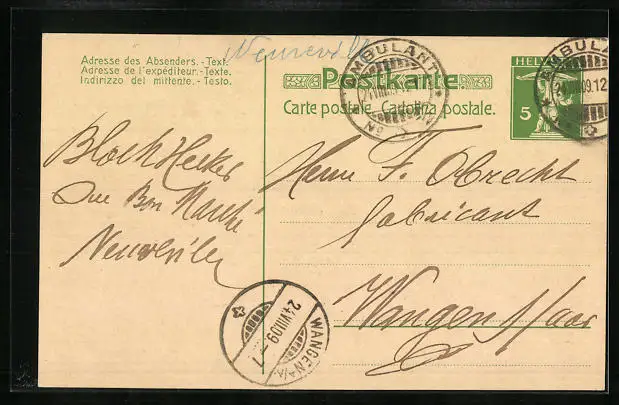 Neuveville
Adresse des Absenders. - Text.
Adresse de l'expéditeur. - Texte.
Indirizzo del mittente. - Testo.
Postkarte.
Carte postale. Cartolina postale.
HELVETIA
5
AMBULANT
Nº
AMBULA
24.VIII.09.12
Bloch Hecker
Bon Marché
Neuveville
Herrn F. Obrecht
fabricant
Wangen a/Aar
24.VIII.09.-7
WANGEN A/A